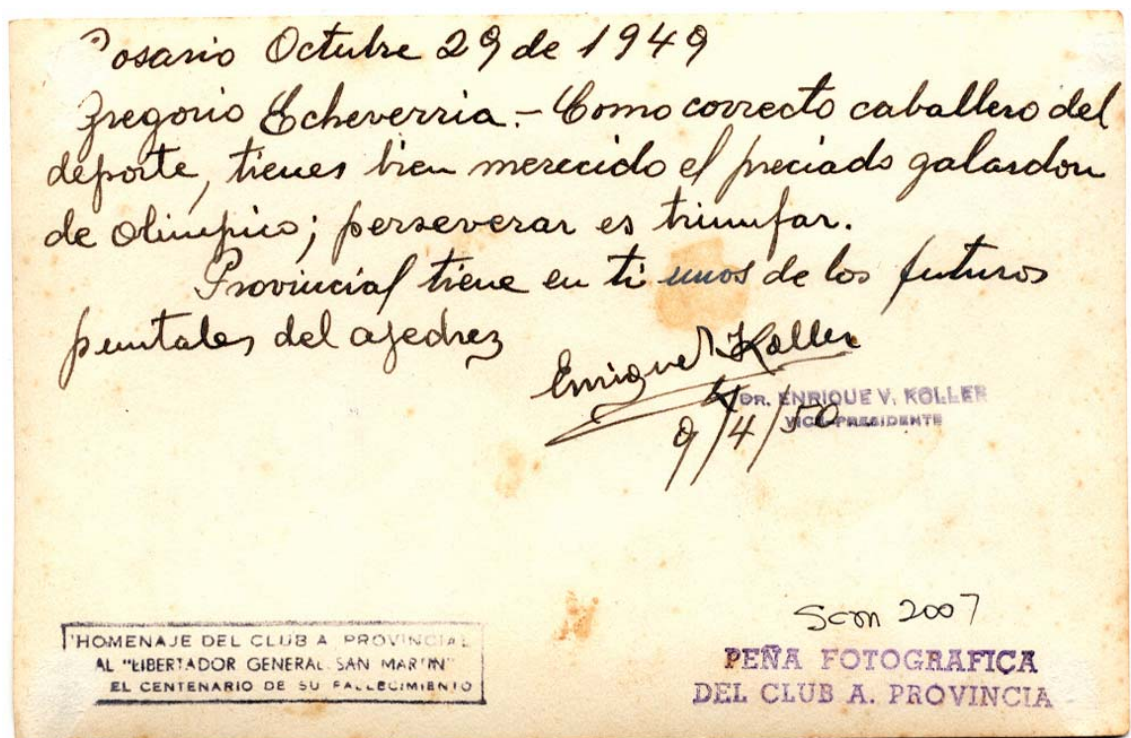 Rosario Octubre 29 de 1949
Gregorio Echeverria.- Como correcto caballero del
deporte, tienes bien merecido el preciado galardon
de Olimpico; perseverar es triunfar.
Provincial tiene en ti unos de los futuros
puntales del ajedrez
Enrique V Koller
DR. ENRIQUE V. KOLLER
VICE-PRESIDENTE
9/4/50
Scm 2007
HOMENAJE DEL CLUB A. PROVINCIAL
AL "LIBERTADOR GENERAL SAN MARTIN"
EL CENTENARIO DE SU FALLECIMIENTO
PEÑA FOTOGRAFICA
DEL CLUB A. PROVINCIA